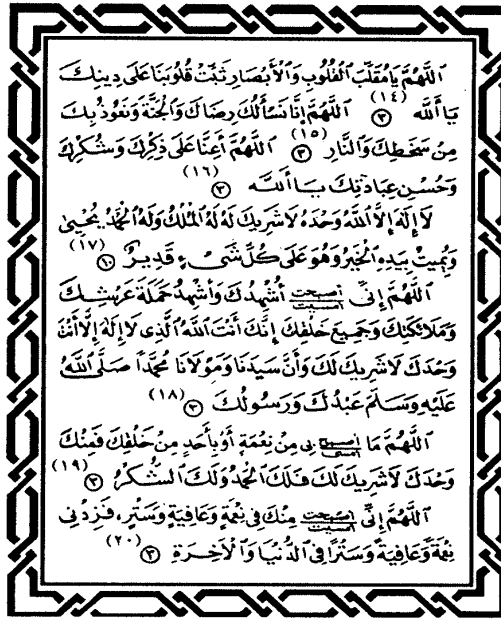 اللَّهُمَّ يَا مُقَلِّبَ الْقُلُوبِ وَالْأَبْصَارِ ثَبِّتْ قُلُوبَنَا عَلَى دِينِكَ
يَا اَللَّه ③ (١٤) اللَّهُمَّ إِنَّا نَسْأَلُكَ رِضَاكَ وَالْجَنَّةَ وَنَعُوذُ بِكَ
مِنْ سَخَطِكَ وَالنَّارِ ③ (١٥) اللَّهُمَّ أَعِنَّا عَلَى ذِكْرِكَ وَشُكْرِكَ
وَحُسْنِ عِبَادَتِكَ يَا اَللَّه ③ (١٦)
لَا إِلَهَ إِلَّا اللَّهُ وَحْدَهُ لَا شَرِيكَ لَهُ لَهُ الْمُلْكُ وَلَهُ الْحَمْدُ يُحْيِى
وَيُمِيتُ بِيَدِهِ الْخَيْرُ وَهُوَ عَلَى كُلِّ شَىْءٍ قَدِيرٌ ⑩ (١٧)
اللَّهُمَّ إِنِّى أصبحت / أمسيت أُشْهِدُكَ وَأُشْهِدُ حَمَلَةَ عَرْشِكَ
وَمَلَائِكَتَكَ وَجَمِيعَ خَلْقِكَ إِنَّكَ أَنْتَ اللَّهُ الَّذِى لَا إِلَهَ إِلَّا أَنْتَ
وَحْدَكَ لَا شَرِيكَ لَكَ وَأَنَّ سَيِّدَنَا وَمَوْلَانَا مُحَمَّدًا صَلَّى اللَّهُ
عَلَيْهِ وَسَلَّمَ عَبْدُكَ وَرَسُولُكَ ③ (١٨)
اللَّهُمَّ مَا أصبح / أمسى بِى مِنْ نِعْمَةٍ أَوْ بِأَحَدٍ مِنْ خَلْقِكَ فَمِنْكَ
وَحْدَكَ لَا شَرِيكَ لَكَ فَلَكَ الْحَمْدُ وَلَكَ الشُّكْرُ ③ (١٩)
اللَّهُمَّ إِنِّى أصبحت / أمسيت مِنْكَ فِى نِعْمَةٍ وَعَافِيَةٍ وَسَتْرٍ، فَزِدْنِى
نِعْمَةً وَعَافِيَةً وَسَتْرًا فِى الدُّنْيَا وَالْآخِرَةِ ③ (٢٠)